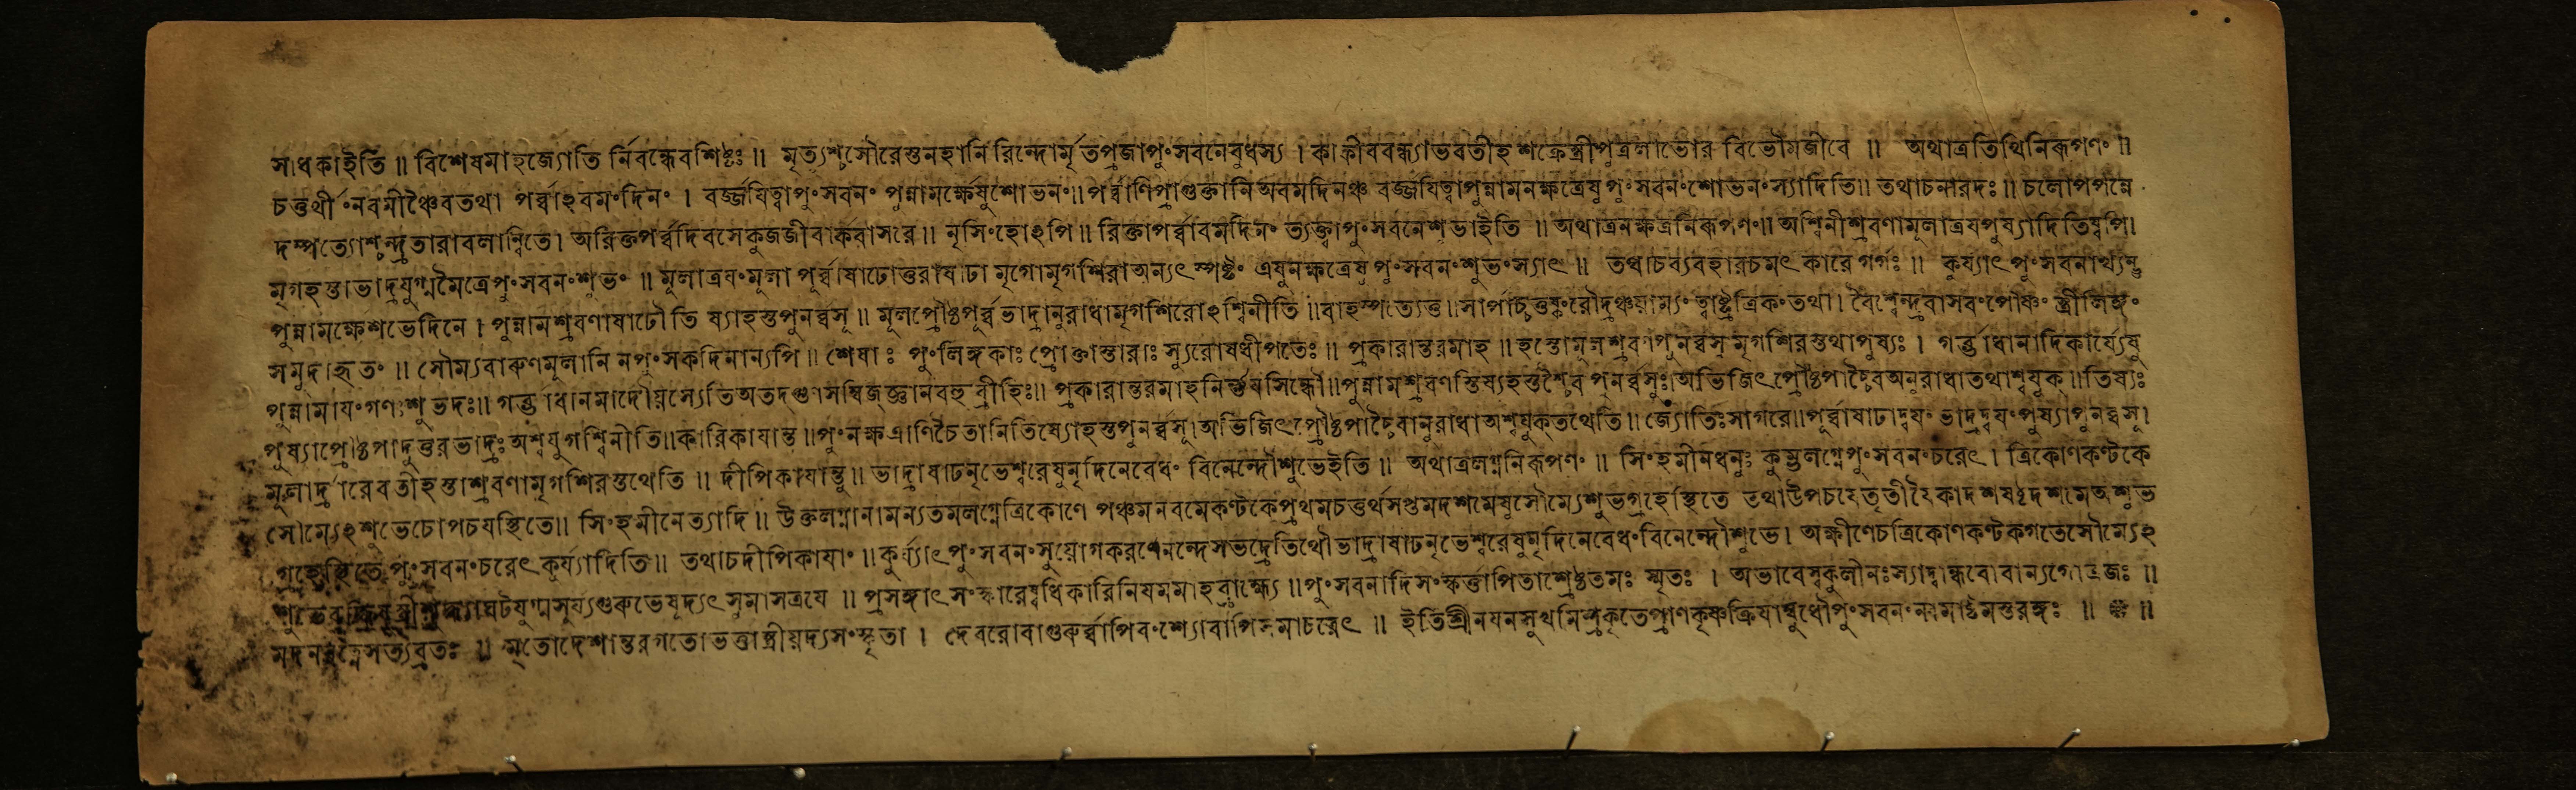 সাধকাইতি ॥ বিশেষমাহজ্যোতি র্নিবন্ধেবশিষ্টঃ ॥ মৃত্যুশ্চসৌরেস্তনহানি রিন্দোর্মৃতপ্রজাপুংসবনেবুধস্য । কাকীববন্ধ্যাভবতীহশক্রেস্ত্রীপুত্রলাভোর বিভৌমজীবে ॥ অথাত্রতিথিনিরূপণং ॥
চতুর্থীংনবমীঞ্চৈবতথা পর্ব্বাঽবমংদিনং । বর্জ্জয়িত্বাপুংসবনং পুন্নামর্ক্ষেষুশোভনং॥ পর্ব্বাণিপ্রাগুক্তানি অবমদিনঞ্চ বর্জ্জয়িত্বাপুন্নামনক্ষত্রেষুপুংসবনংশোভনংস্যাদিতি॥ তথাচনারদঃ ॥ চলোপপন্নে
দম্পত্যোশ্চন্দ্রতারাবলান্বিতে। অরিক্তপর্ব্বদিবসেকুজজীবার্কবাসরে॥ নৃসিংহোঽপি॥ রিক্তাপর্ব্বাবমদিনং ত্যক্ত্বাপুংসবনেশুভাইতি ॥ অথাত্রনক্ষত্রনিরূপণং॥ অশ্বিনীশ্রবণামূলাত্রয়পুষ্যাদিতিষ্বপি।
মৃগহস্তাভাদ্রযুগ্মমৈত্রেপুংসবনংশুভং ॥ মূলাত্রয়ংমূলা পূর্ব্বাষাঢোত্তরাষাঢা মৃগোমৃগশিরাঅন্যৎ স্পষ্টং এষুনক্ষত্রেষুপুংসবনংশুভংস্যাৎ ॥ তথাচব্যবহারচমৎকারে গর্গঃ ॥ কুর্য্যাৎ পুংসবনাখ্যন্তু
পুন্নামর্ক্ষেশুভেদিনে । পুন্নামশ্রবণাষাঢৌতি ষ্যাহস্তপুনর্ব্বসূ ॥ মূলপ্রৌষ্ঠপূর্ব্বভাদ্রানুরাধামৃগশিরোঽশ্বিনীতি ॥বার্হস্পত্যেতু॥ সার্পাচ্চতুষ্কংরৌদ্রঞ্চয়াম্যং ত্বাষ্ট্রত্রিকংতথা। বৈশ্বেন্দ্রবাসবংপৌষ্ণং স্ত্রীলিঙ্গং
সমুদাহৃতং ॥ সৌম্যবারুণমূলানি নপুংসকদিনান্যপি ॥ শেষাঃ পুংলিঙ্গকাঃ প্রোক্তাস্তারাঃ স্যুরোষধীপতেঃ ॥ প্রকারান্তরমাহ ॥ হস্তোমূলশ্রবণাপুনর্ব্বসুমৃগশিরস্তথাপুষ্যঃ । গর্ভাধানাদিকার্য্যেষু
পুন্নামায়ংগণঃশুভদঃ॥ গর্ভাধানমাদৌয়স্যেতিঅতদ্গুণসম্বিজ্ঞানবহুব্রীহিঃ॥ প্রকারান্তরমাহনির্ণয়সিন্ধৌ॥পুন্নামশ্রবণস্তিষ্যহস্তশ্চৈব পুনর্ব্বসুঃ।অভিজিৎপ্রৌষ্ঠপাচ্চৈবঅনুরাধাতথাশ্বযুক্ ॥তিষ্যঃ
পুষ্যাপ্রৌষ্ঠপাদুত্তরভাদ্রঃ অশ্বযুগশ্বিনীতি॥কারিকাযান্তু ॥পুংনক্ষত্রাণিচৈতানিতিষ্যোহস্তপুনর্ব্বসূ।অভিজিৎপ্রৌষ্ঠপাচ্চৈবানুরাধাঅশ্বযুক্তথেতি ॥ জ্যোতিঃসাগরে॥পূর্ব্বাষাঢাদ্বয়ং ভাদ্রদ্বয়ংপুষ্যাপুনর্ব্বসূ।
মূলার্দ্রারেবতীহস্তাশ্রবণামৃগশিরস্তথেতি ॥ দীপিকাযান্তু॥ ভাদ্রাষাঢনৃভেশ্বরেষুনৃদিনেবেধং বিনেন্দৌশুভেইতি ॥ অথাত্রলগ্ননিরূপণং ॥ সিংহমীনধনুঃ কুম্ভলগ্নেপুংসবনংচরেৎ । ত্রিকোণকণ্টকে
সৌম্যেঽশুভেচোপচয়স্থিতে॥ সিংহমীনেত্যাদি ॥ উক্তলগ্নানামন্যতমলগ্নেত্রিকোণে পঞ্চমনবমেকণ্টকেপ্রথমচতুর্থসপ্তমদশমেষুসৌম্যেশুভগ্রহেস্থিতে তথাউপচয়েতৃতীয়ৈকাদশষষ্ঠদশমেঅশুভ
গ্রহেস্থিতে পুংসবনংচরেৎকুর্য্যাদিতি॥ তথাচদীপিকাযাং ॥ কুর্য্যাৎপুংসবনংসুয়োগকরণেনন্দেসভদ্রেতিথৌভাদ্রাষাঢনৃভেশ্বরেষুনৃদিনেবেধংবিনেন্দৌশুভে। অক্ষীণেচত্রিকোণকণ্টকগতেসৌম্যেঽ
যুগ্মসূর্য্যগুরুভেষূদ্যৎসুমাসত্রযে ॥ প্রসঙ্গাৎসংস্কারেষ্বধিকারিনিয়মমাহব্রাহ্ম্যে ॥পুংসবনাদিসংস্কর্ত্তাপিতাশ্রেষ্ঠতমঃ স্মৃতঃ । অভাবেস্বকুলীনঃস্যাদ্বান্ধবোবান্যগোত্রজঃ ॥
মদনরত্নেসত্যব্রতঃ ॥ মৃতোদেশান্তরগতোভর্ত্তাস্ত্রীয়দ্যসংস্কৃতা । দেবরোবাগুরুর্ব্বাপিবংশ্যোবাপিসমাচরেৎ ॥ ইতিশ্রীনয়নসুখমিশ্রকৃতেপ্রাণকৃষ্ণক্রিয়াম্বুধৌপুংসবনংনামাষ্টমস্তরঙ্গঃ ॥ ❁ ॥